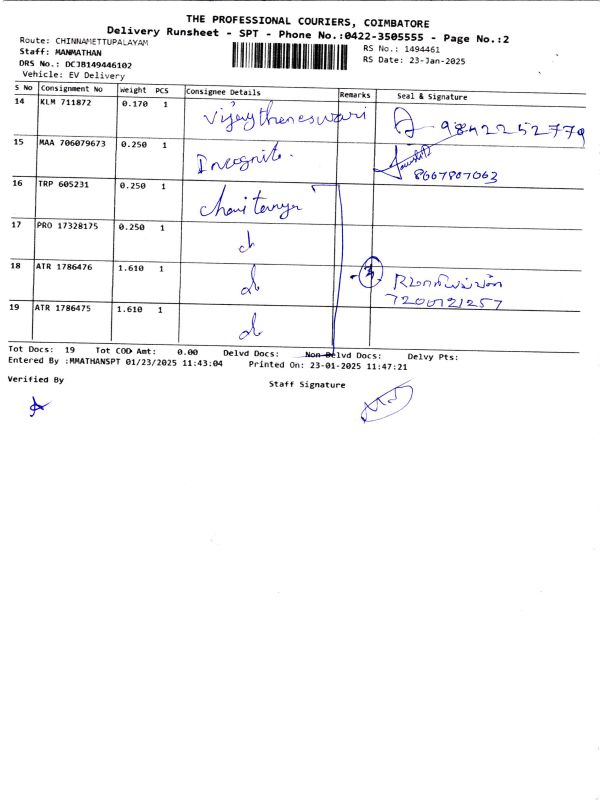 THE PROFESSIONAL COURIERS, COIMBATORE
Delivery Runsheet - SPT - Phone No.:0422-3505555 - Page No.:2
Route: CHINNAMETTUPALAYAM
RS No.: 1494461
Staff: MANMATHAN
RS Date: 23-Jan-2025
DRS No.: DCJB149446102
Vehicle: EV Delivery
S No Consignment No Weight PCS Consignee Details Remarks Seal & Signature
14 KLM 711872 0.170 1 Vijaytheneswari 9842252779
15 MAA 706079673 0.250 1 Incognito. 8667807063
16 TRP 605231 0.250 1 Chaitanya
17 PRO 17328175 0.250 1
18 ATR 1786476 1.610 1 7200121257
19 ATR 1786475 1.610 1
Tot Docs: 19 Tot COD Amt: 0.00 Delvd Docs: Non Delvd Docs: Delvy Pts:
Entered By :MMATHANSPT 01/23/2025 11:43:04 Printed On: 23-01-2025 11:47:21
Verified By
Staff Signature